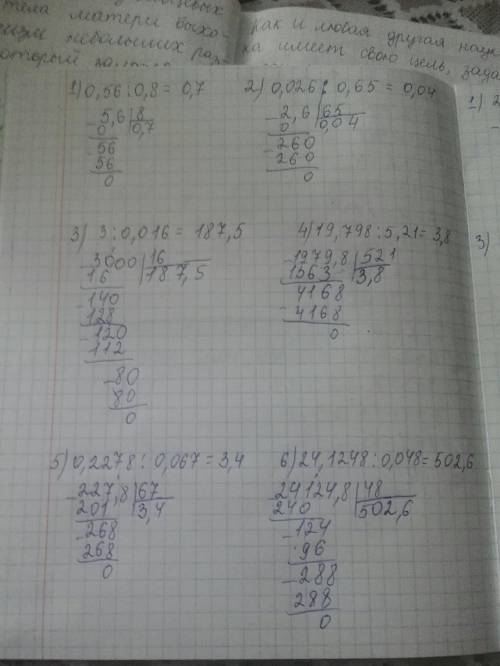 тела матери выхо-
как и любая другая наук
небольших раз
ка имеет свою цель, зада
который
1) 0,56 : 0,8 = 0,7
5,6 8
0 0,7
56
56
0
2) 0,026 : 0,65 = 0,04
2,6 65
0 0,04
260
260
0
1) 2
3) 3 : 0,016 = 187,5
3000 16
16 187,5
140
128
120
112
80
80
0
4) 19,798 : 5,21 = 3,8
1979,8 521
1563 3,8
4168
4168
0
3)
5) 0,2278 : 0,067 = 3,4
227,8 67
201 3,4
268
268
0
6) 24,1248 : 0,048 = 502,6
24124,8 48
240 502,6
124
96
288
288
0